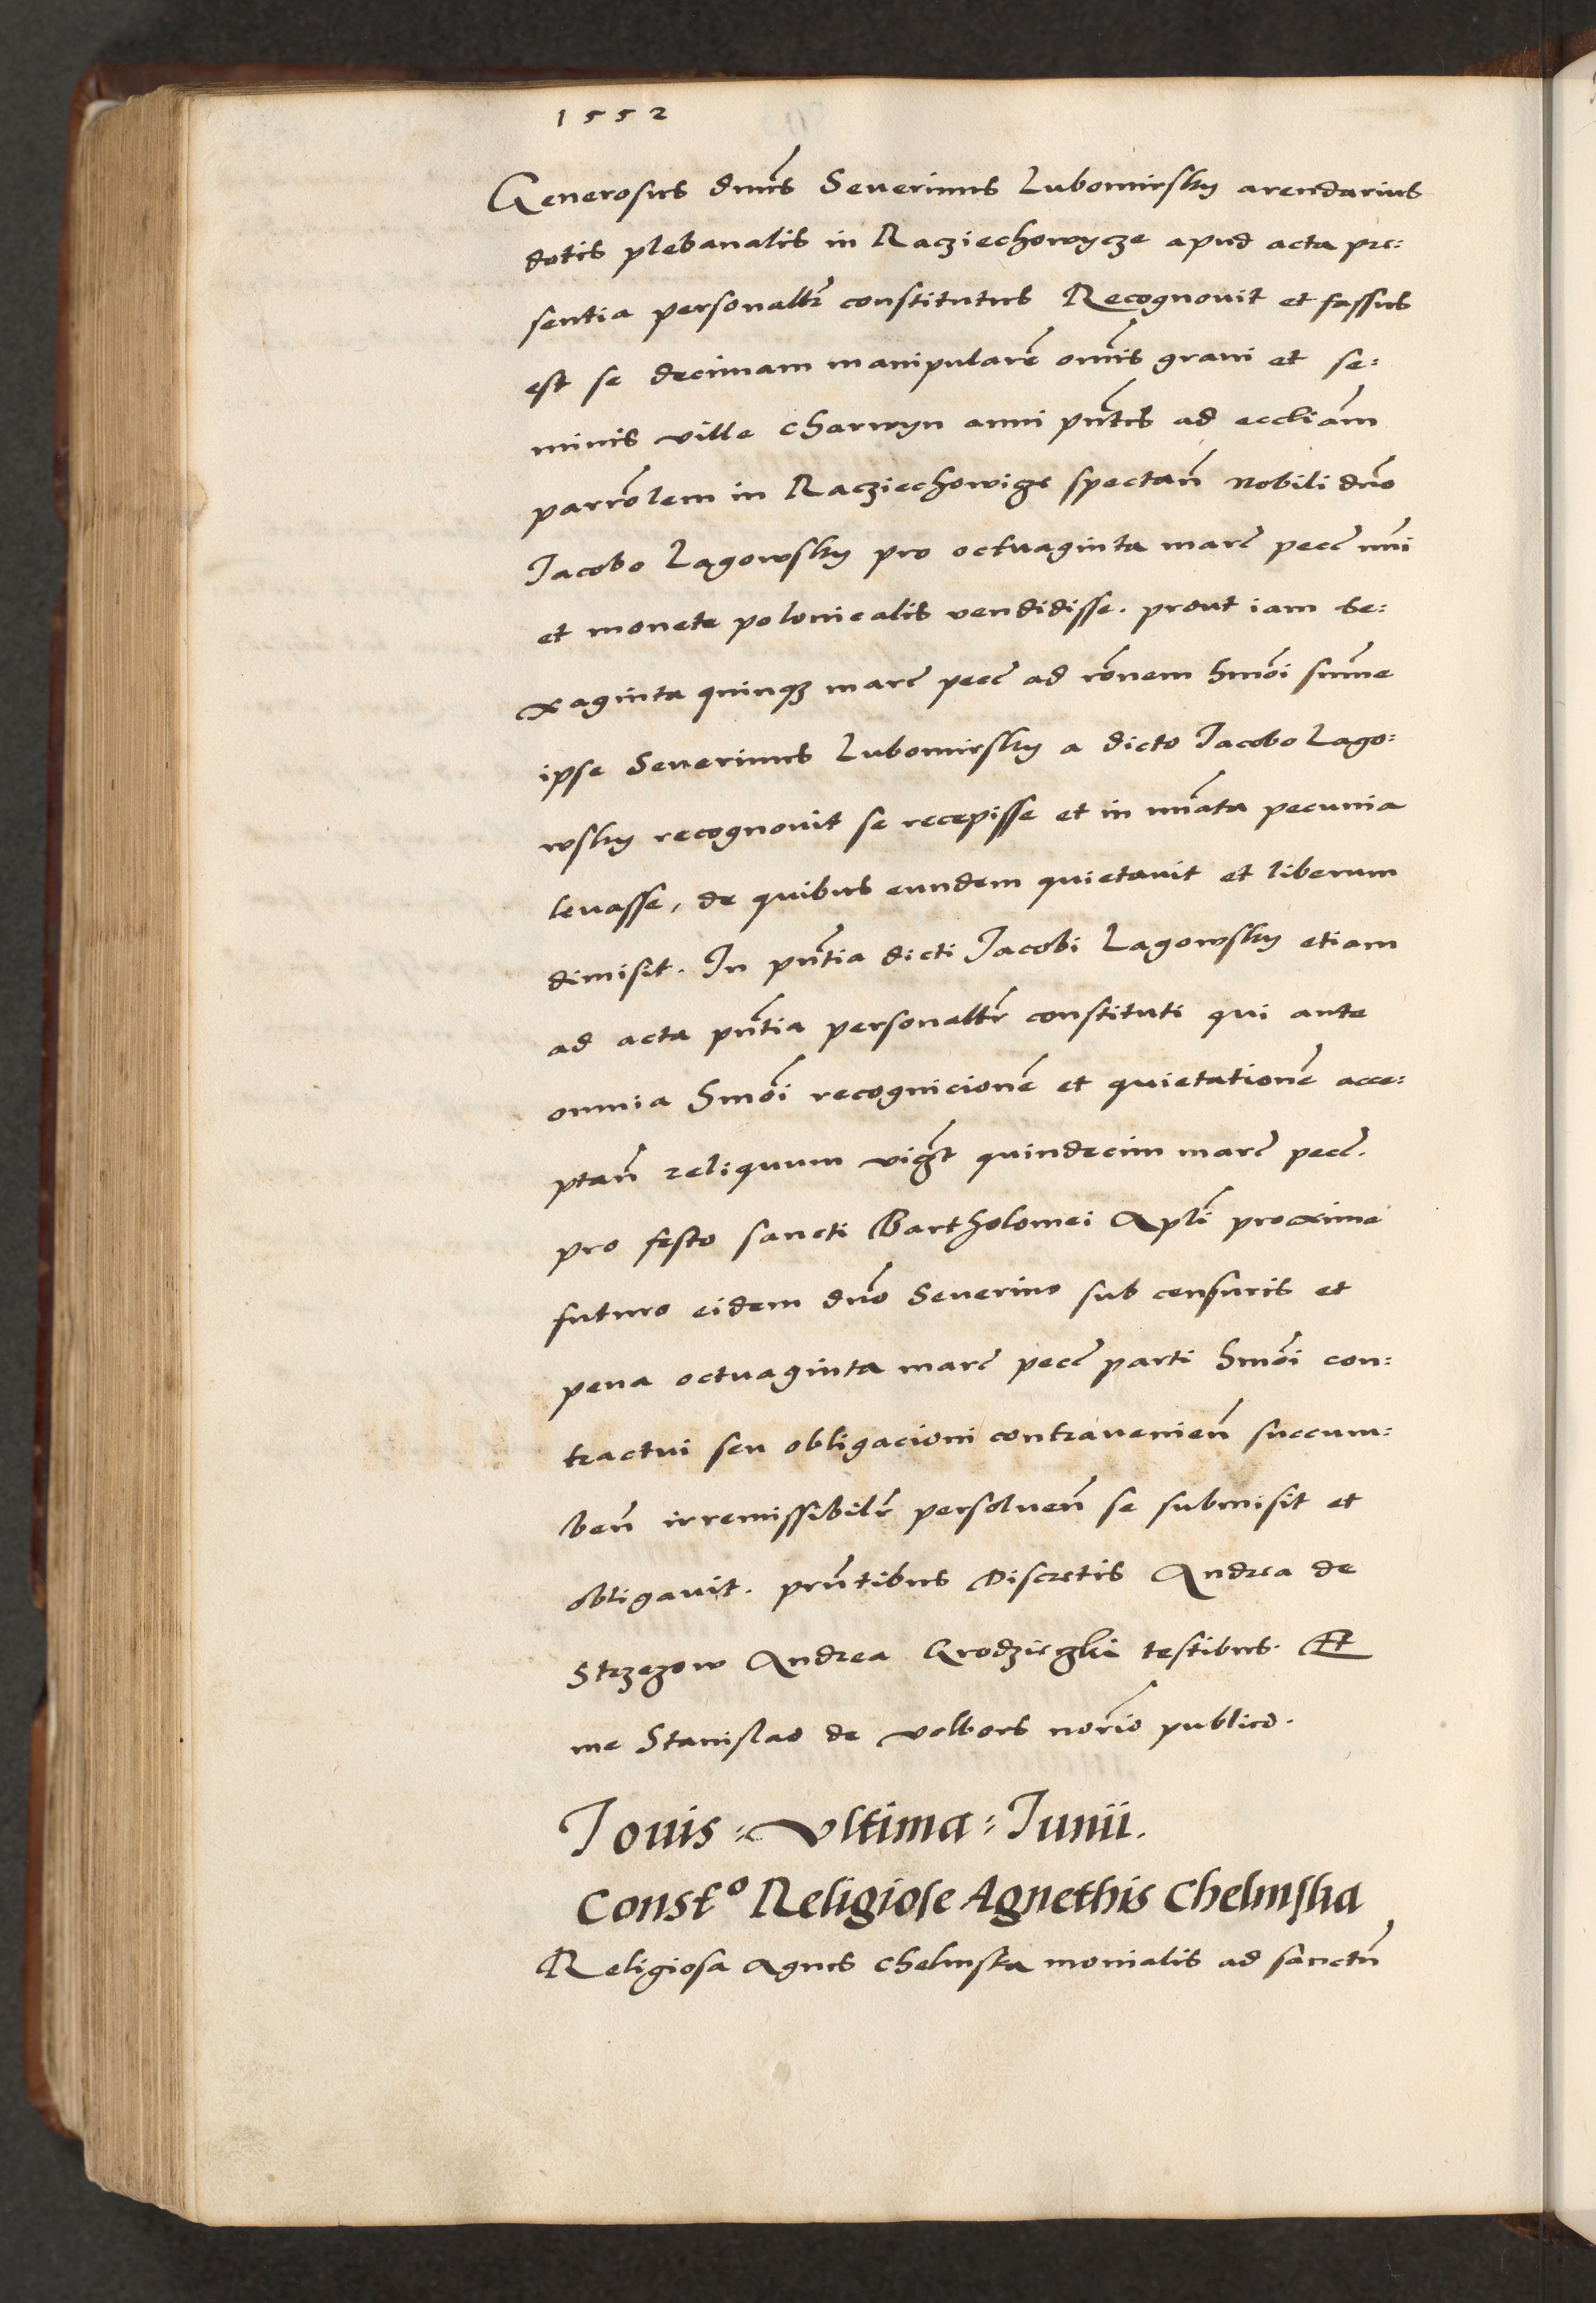 1552
Generosus dnus Seuerinus Lubomirsky arendarius
dotis plebanalis in Racziechowycze apud acta pre:
sentia personaltr constitutus Recognouit et fassus
est se decimam manipularē omīs grani et se:
minis ville Charwyn anni pñtis ad eccliam
parrolem in Racziechowicze spectañ Nobili dño
Jacobo Lagowsky pro octuaginta marc pecc nūi
et monete polonicalis vendidisse. prout iam se:
xaginta quinqз marc pecc ad rōnem hmōi sūme
ipse Seuerinus Lubomirsky a dicto Jacobo Lago:
wsky recognouit se recepisse et in nūata pecunia
leuasse, de quibus eundem quietauit et liberum
dimisit. In pñtia dicti Jacobi Lagowsky etiam
ad acta pñtia personaltr constituti qui ante
omnia hmōi recognicionē et quietationē acce:
ptañ reliquum vigt quindecim marc pecc.
pro festo sancti Bartholomei Apli proxime
futuro eidem dño Seuerino sub censuris et
pena octuaginta marc pecc parti hmōi con:
tractui seu obligacioni contravenieñ succum:
beñ irremissibilr persolueñ se submisit et
obligauit. pñtibus Discretis Andrea de
Strzezow Andrea Grodziczki testibus. Et
me Stanislao de volbors norio publico.
Jouis : Vltima : Junii.
Constº Religiose Agnethis Chelmska
Religiosa Agnes Chelmska monialis ad sanctū